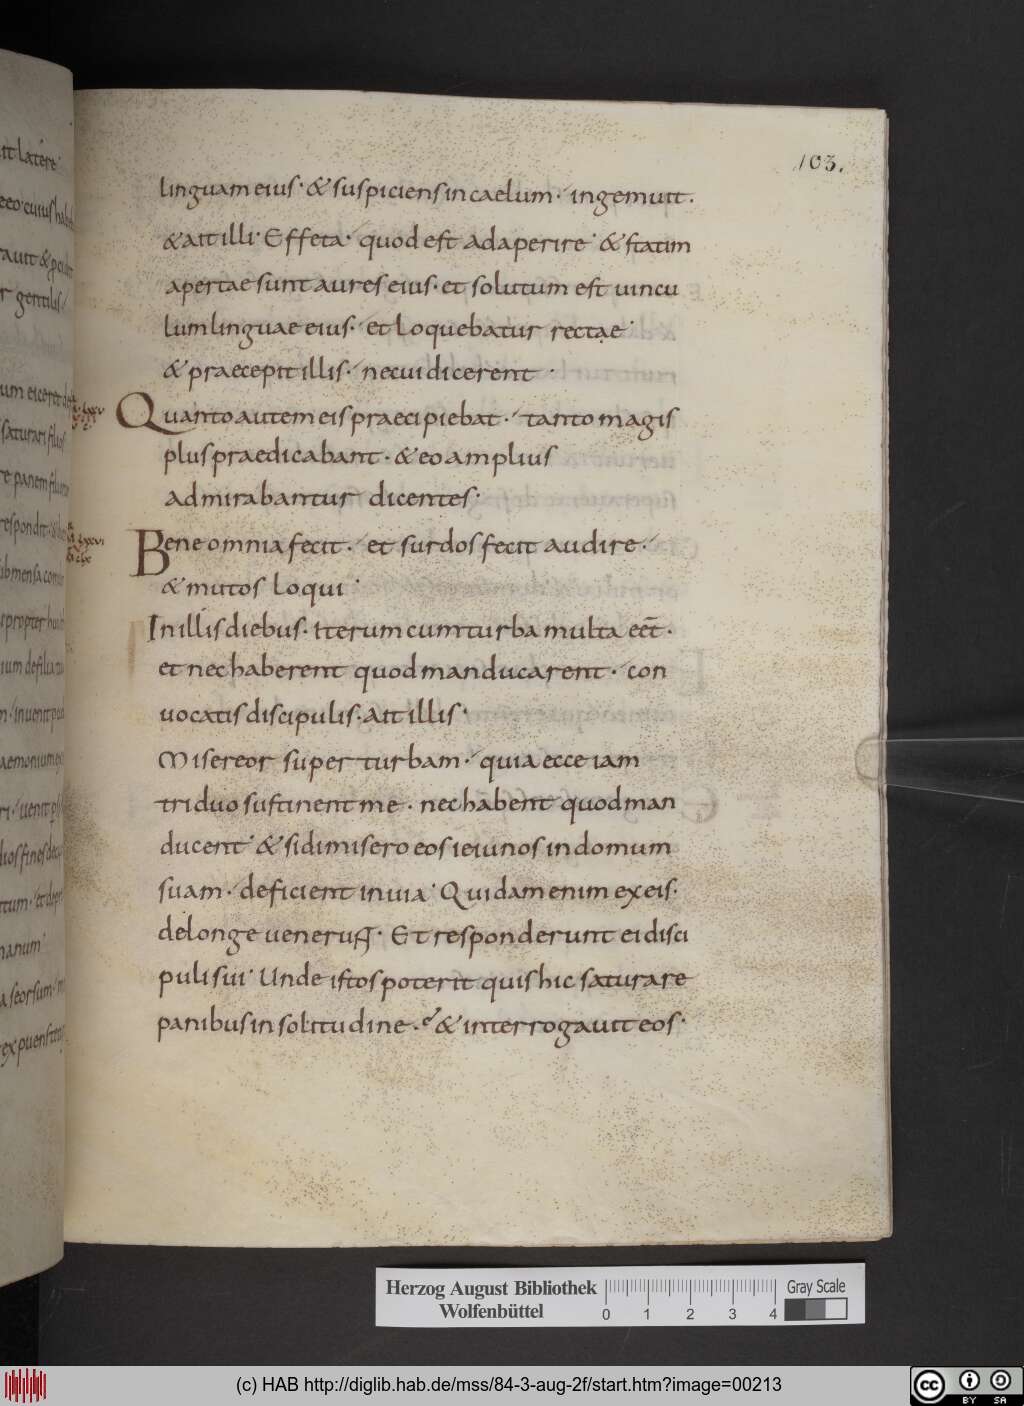 103.
linguam eius · & suspiciens in caelum · ingemuit .
& ait illi · Effeta · quod est adaperire · & statim
apertae sunt aures eius · et solutum est uincu
lum linguae eius · et loquebatur rectae ·
& praecepit illis · necui dicerent ·
Quanto autem eis praecipiebat · tanto magis
plus praedicabant · & eo amplius
admirabantur dicentes ·
Bene omnia fecit · et surdos fecit audire ·
& mutos loqui ·
In illis diebus · iterum cum turba multa eēt ·
et nec haberent quod manducarent · con
uocatis discipulis · Ait illis ·
Misereor super turbam · quia ecce iam
triduo sustinent me · nec habent quod man
ducent · & si dimisero eos ieiunos in domum
suam · deficient in uia · Quidam enim ex eis ·
de longe uenerunt · Et responderunt ei disci
puli sui · Unde istos poterit quis hic saturare
panibus in solitudine · & interrogauit eos ·
it latere
cuius
gentilis
saturari filios
panem
respondit
propter
inuenit
daemonium
uenit
seorsum
Herzog August Bibliothek
Wolfenbüttel
0 1 2 3 4
Gray Scale
(c) HAB http://diglib.hab.de/mss/84-3-aug-2f/start.htm?image=00213
cc BY SA